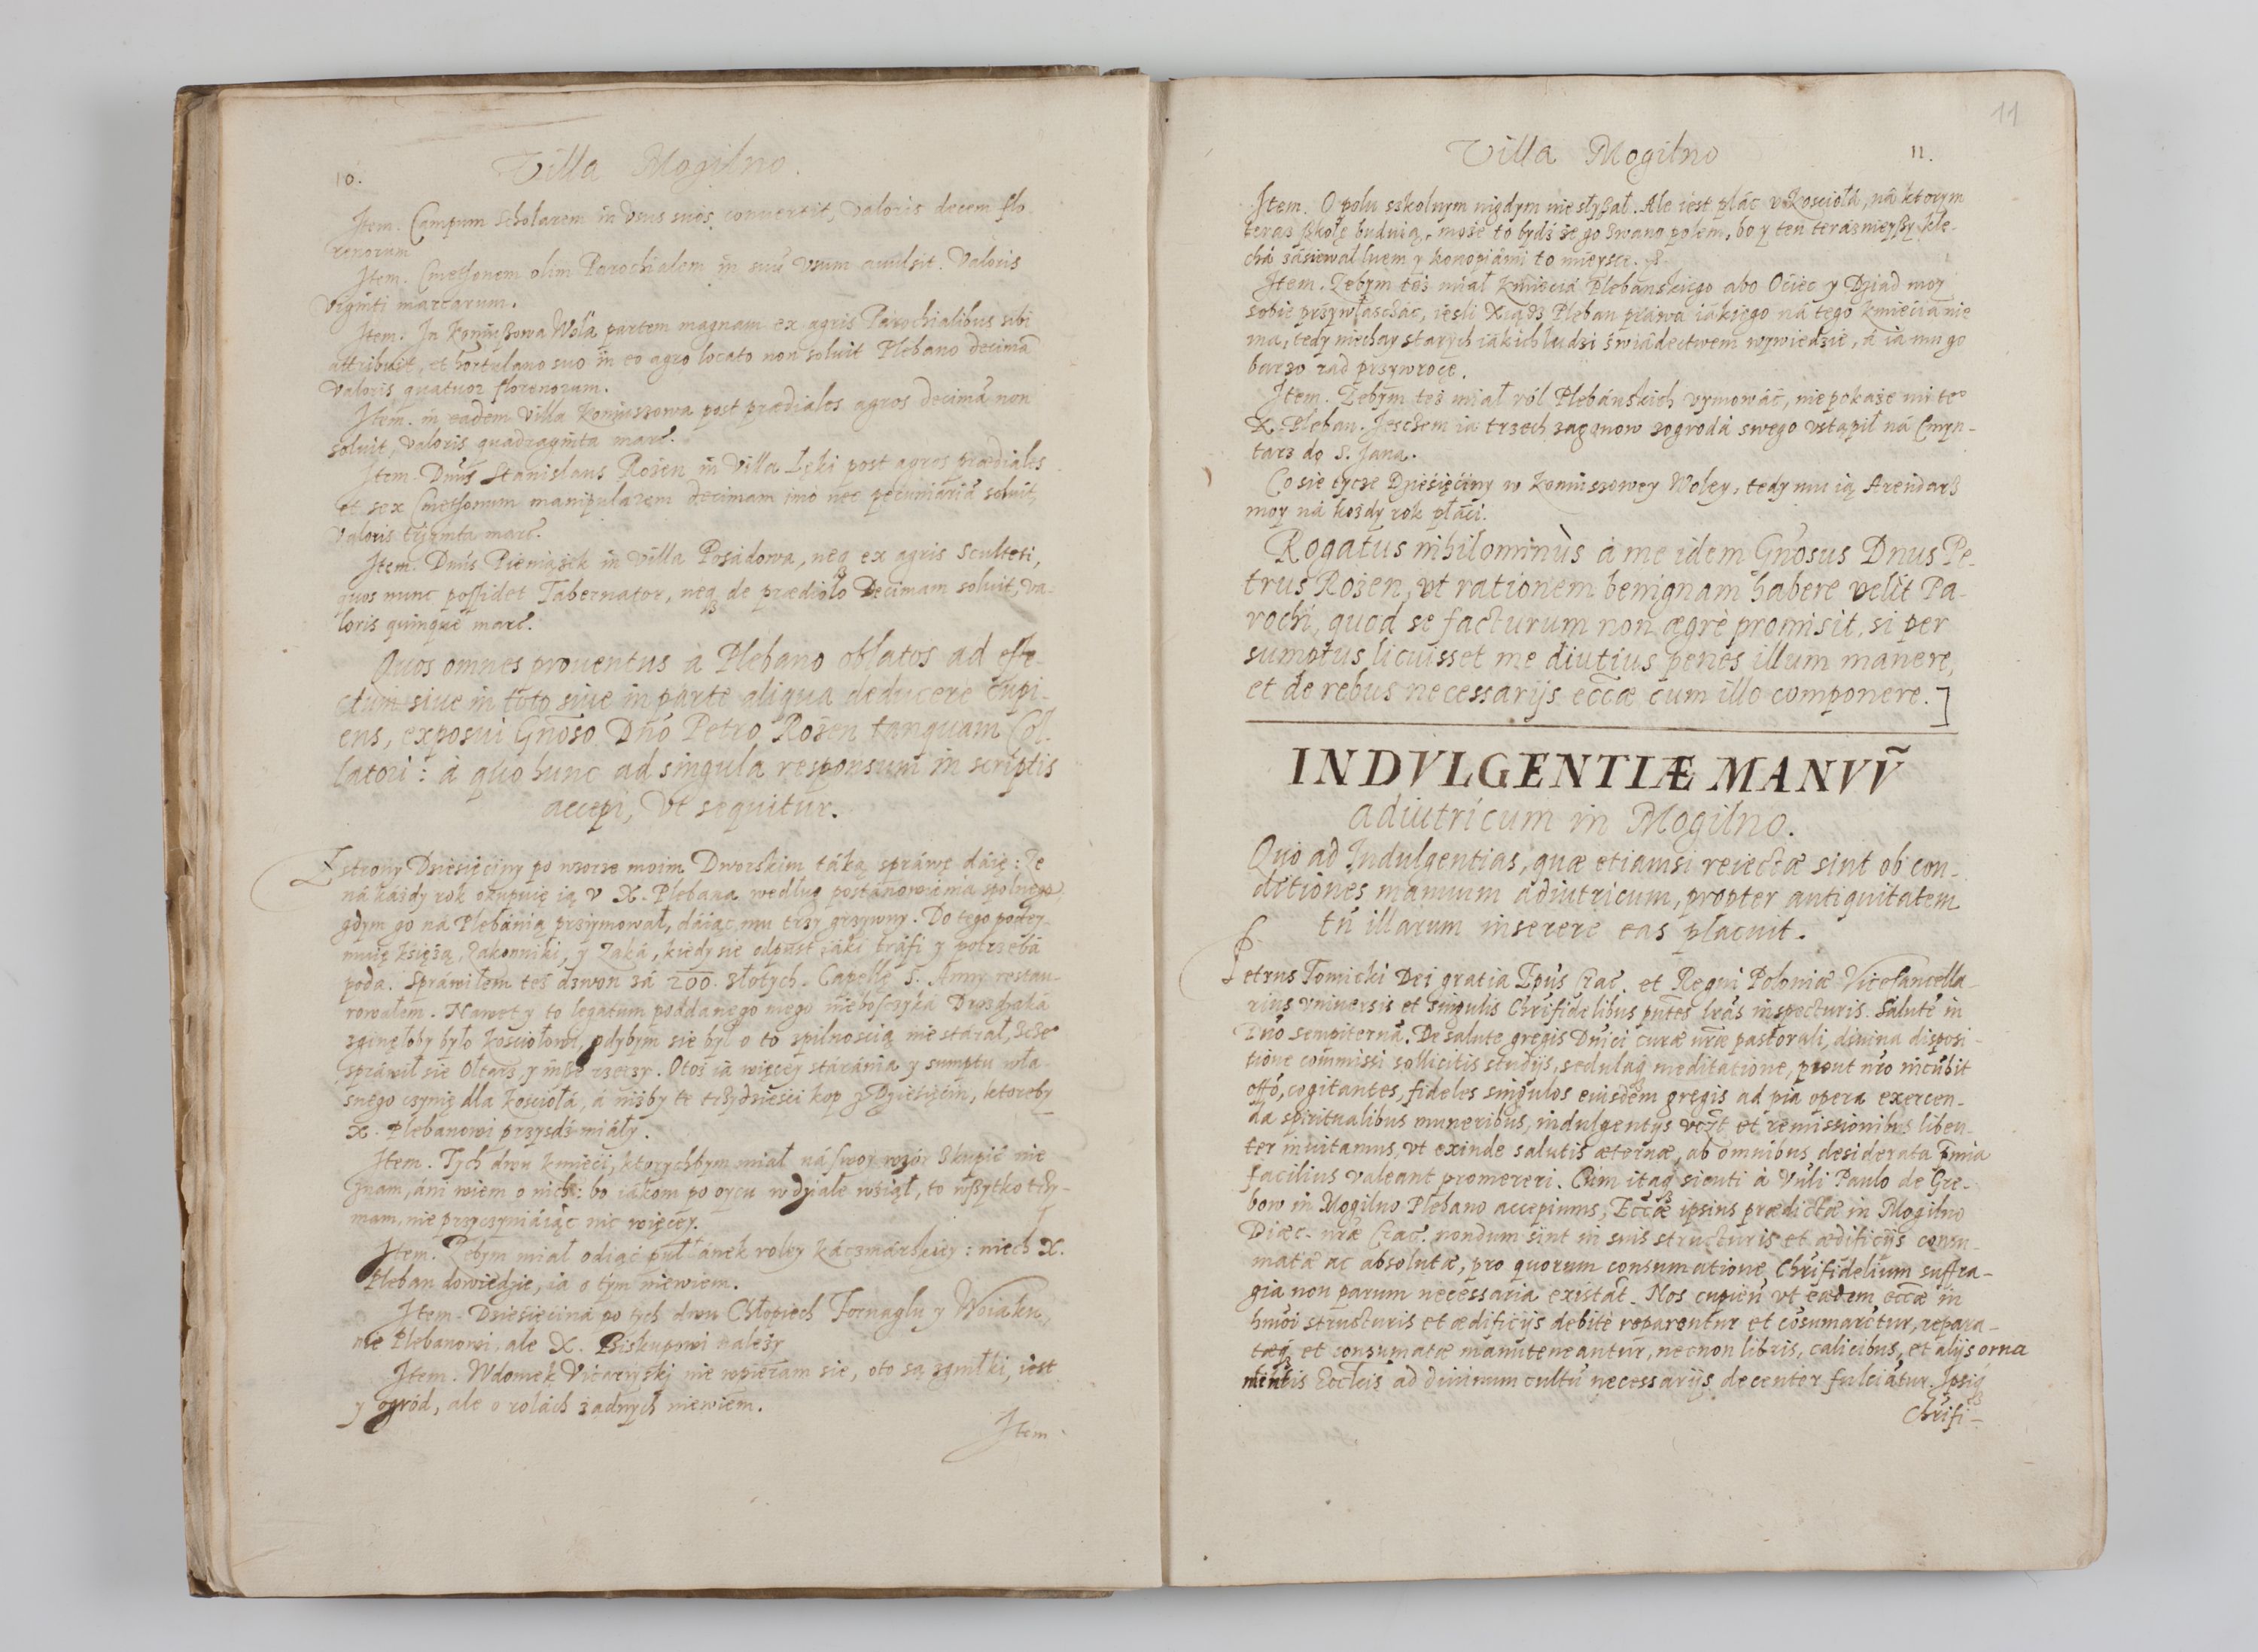 10.
Villa Mogilno.
Item. Campum scholarem in vsus suos conuertit, valoris decem flo
renorum
Item. Cmethonem olim Parochialem in suũ vsum auulsit. Valoris
viginti marcarum.
Item. In Koniußowa Wola partem magnam ex agris Parochialibus sibi
attribuit, et hortulano suo in eo agro locato non soluit Plebano decimã
valoris quatuor florenorum.
Item. in eadem villa Koniussowa post prædiales agros decimã non
soluit, valoris quadraginta marc.
Item. Dnus Stanislaus Rożen in Villa Łęki post agros prædiales
et sex Cmethonum manipularem decimam imo nec pecuniariã soluit,
valoris triginta marc.
Item. Dnus Pieniążek in villa Posadowa, neq3 ex agris Sculteti,
quos nunc possidet Tabernator, neq3 de prædiolo Decimam soluit, va-
loris quinque marc.
Quos omnes prouentus à Plebano oblatos ad effe-
ctum siue in toto siue in parte aliqua deducere cupi-
ens, exposui Gnoso Dño Petro Rożen tanquam Col-
latori: à quo hunc ad singula responsum in scriptis
accepi, vt sequitur.
Z strony Dziesięciny po wzorze moim Dworskim táką spráwę dáię: Ze
ná káżdy rok okupuię ią v X. Plebana według postánowienia spolnego,
gdym go ná Plebánią przymował, dáiąc mu trzy grzywny. Do tego podey-
muię księżą, zakonniki, y żaká, kiedy sie odpust iáki tráfi y potrzebá
poda. Spráwiłem też dzwon zá 200. złotych. Capellę S. Anny restau-
rowałem. Nawet y to legatum poddanego mego nieboszczyká Drozdzaká
zginęłoby było kościołowi, gdybym sie był o to z pilnością nie stárał, zcze°
spráwił sie Ołtarz, y inße rzeczy. Otoż ia więcey stáránia y sumptu wła-
snego czynię dla kościołá, á niżby te trzydzieści kop z Dziesięcin, ktoreby
X. Plebanowi przyść miáły.
Item. Tych dwu kmieci, ktorychbym miał ná swoy wzór skupić nie
znam, áni wiem o nich: bo iákom po oycu w dziale wziął, to wßytko trzy-
mam, nie przyczyniáiąc nic więcey.
Item. Zebym miał odiąć puł łánek roley káczmárskiey: niech X.
Pleban dowiedzie, ia o tym niewiem.
Item. Dziesięciná po tych dwu Chłopiech Tornaglu y Woiaku,
nie Plebanowi, ale X. Biskupowi należy
Item. W domek Vicaryiski nie wpieram sie, oto są zgniłki, iest
y ogród, ale o rolách żadnych niewiem.
Item
11
Villa Mogilno
11.
Item. O polu szkolnym nigdym nie słyßał. Ale iest plác v kościołá, ná ktorym
teraz ßkołę buduią, może to bydź że go zwano polem, bo y ten teráznieyßy kle-
chá zásiewał lnem y konopiámi to mieysce.
Item. Zebym też miał kmieciá Plebanskiego abo Ociec y Dziad moy
sobie przywłaszczáć, iesli Xiądz Pleban práwá iákiego ná tego kmieciá nie
ma, tedy niechay starych iákich ludzi świádectwem wywiedzie, á ia mu go
barzo rad przywrocę.
Item. Zebym też miał ról Plebánskich vymowáć, nie pokaże mi te°
X. Pleban. Jeszczem ia trzech zagonow zogrodá swego vstąpił ná Cmyn-
tarz do S. Jana.
Co sie tycze Dziesięciny w Koniuszowey Woley, tedy mu ią Arendarz
moy ná kożdy rok płáci.
Rogatus nihilominùs à me idem Gnosus Dnus Pe-
trus Rożen, vt rationem benignam habere velit Pa-
rochi, quod se facturum non ægrè promisit, si per
sumptus licuisset me diutius penes illum manere,
et de rebus necessarijs eccæ cum illo componere.]
INDVLGENTIÆ MANVṼ
adiutricum in Mogilno.
Quo ad Indulgentias, quæ etiamsi reiectæ sint ob con-
ditiones manuum adiutricum, propter antiquitatem
tñ illarum inserere eas placuit.
Petrus Tomicki Dei gratia Epus Crac. et Regni Poloniæ Vicecancella-
rius vniuersis et singulis Chrifidelibus pntes lras inspecturis. Salutẽ in
Dño sempiternã. De salute gregis Dnici curæ nræ pastorali, diuina disposi-
tione commissi sollicitis studijs, sedulaq3 meditatione, prout nro incũbit
offo, cogitantes, fideles singulos eiusdem gregis ad pia opera exercen-
da spiritualibus muneribus, indulgentijs vczt et remissionibus liben-
ter inuitamus, vt exinde salutis æternæ, ab omnibus desiderata pmia
facilius valeant promereri. Cùm itaq3 sicuti à Vnli Paulo de Gre-
bow in Mogilno Plebano accepimus, Eccæ ipsius prædictæ in Mogilno
Diæc. nræ Crac. nondum sint in suis structuris et ædificijs consu-
matæ ac absolutæ, pro quorum consumatione Chrifidelium suffra-
gia non parum necessaria existãt. Nos cupien vt eædem eccæ in
hmoi structuris et ædificijs debitè reparentur et cõsumarẽtur, repara-
tæq3 et consumatæ manuteneantur, necnon libris, calicibus, et alijs orna
mentis Eccleis ad diuinum cultũ necessarijs decenter fulciãtur. Ipsiq3
Chrifi-